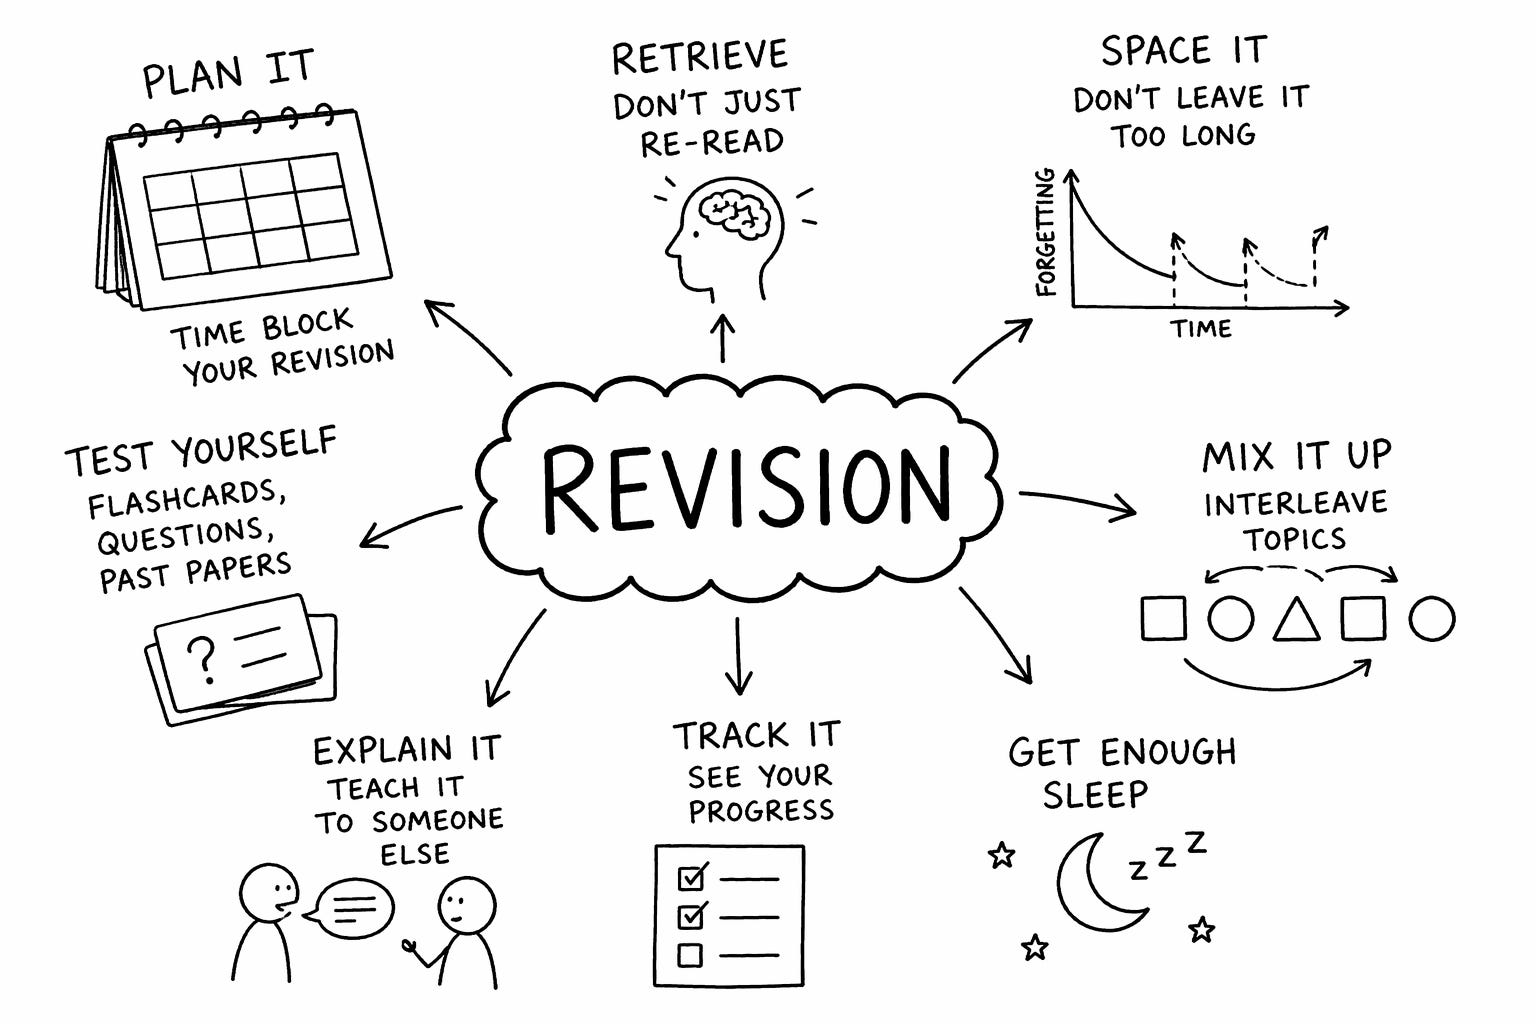 PLAN IT
TIME BLOCK
YOUR REVISION
RETRIEVE
DON'T JUST
RE-READ
SPACE IT
DON'T LEAVE IT
TOO LONG
FORGETTING
TIME
TEST YOURSELF
FLASHCARDS,
QUESTIONS,
PAST PAPERS
?
REVISION
MIX IT UP
INTERLEAVE
TOPICS
EXPLAIN IT
TEACH IT
TO SOMEONE
ELSE
TRACK IT
SEE YOUR
PROGRESS
GET ENOUGH
SLEEP
Z Z Z